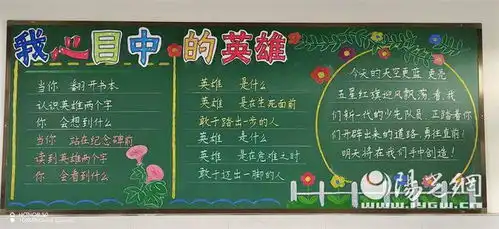 我心目中的英雄
当你 翻开书本
认识英雄两个字
你 会想到什么
当你 站在纪念碑前
读到英雄两个字
你 会看到什么
英雄 是什么
英雄 是在生死面前
敢于踏出一步的人
英雄 是什么
英雄 是在危难之时
敢于迈出一脚的人
今天的天空更蓝 更亮
五星红旗迎风飘荡,看,我
们新一代的少先队员,正踏着你
们开辟出来的道路,勇往直前!
明天将在我们手中创造!
HONOR 20
陽光網
www.iygw.cn